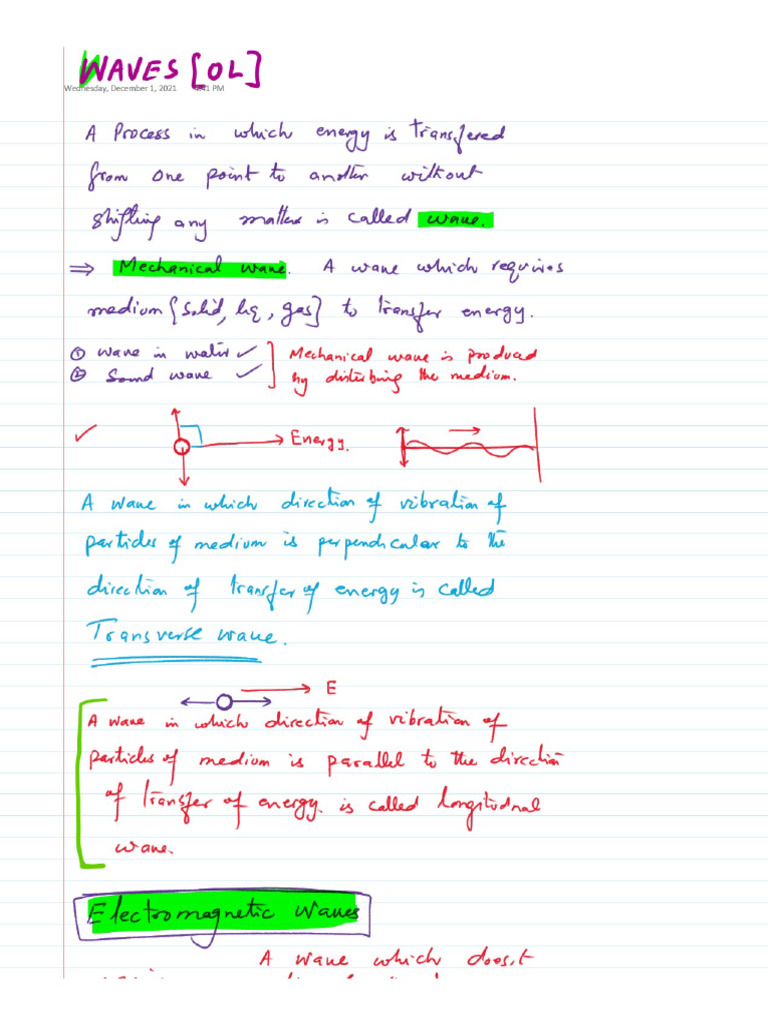 WAVES [OL]
Wednesday, December 1, 2021 4:41 PM
A Process in which energy is transfered
from one point to another without
shifting any matter is called wave.
⇒ Mechanical wave. A wave which requires
medium {solid, liq, gas} to transfer energy.
① wave in water ✓ ] Mechanical wave is produced
② Sound wave ✓ ] by disturbing the medium.
✓ Energy.
A wave in which direction of vibration of
particles of medium is perpendicular to the
direction of transfer of energy is called
Transverse wave.
E
A wave in which direction of vibration of
particles of medium is parallel to the direction
of transfer of energy. is called longitudnal
wave.
Electromagnetic Waves
A wave which does,t